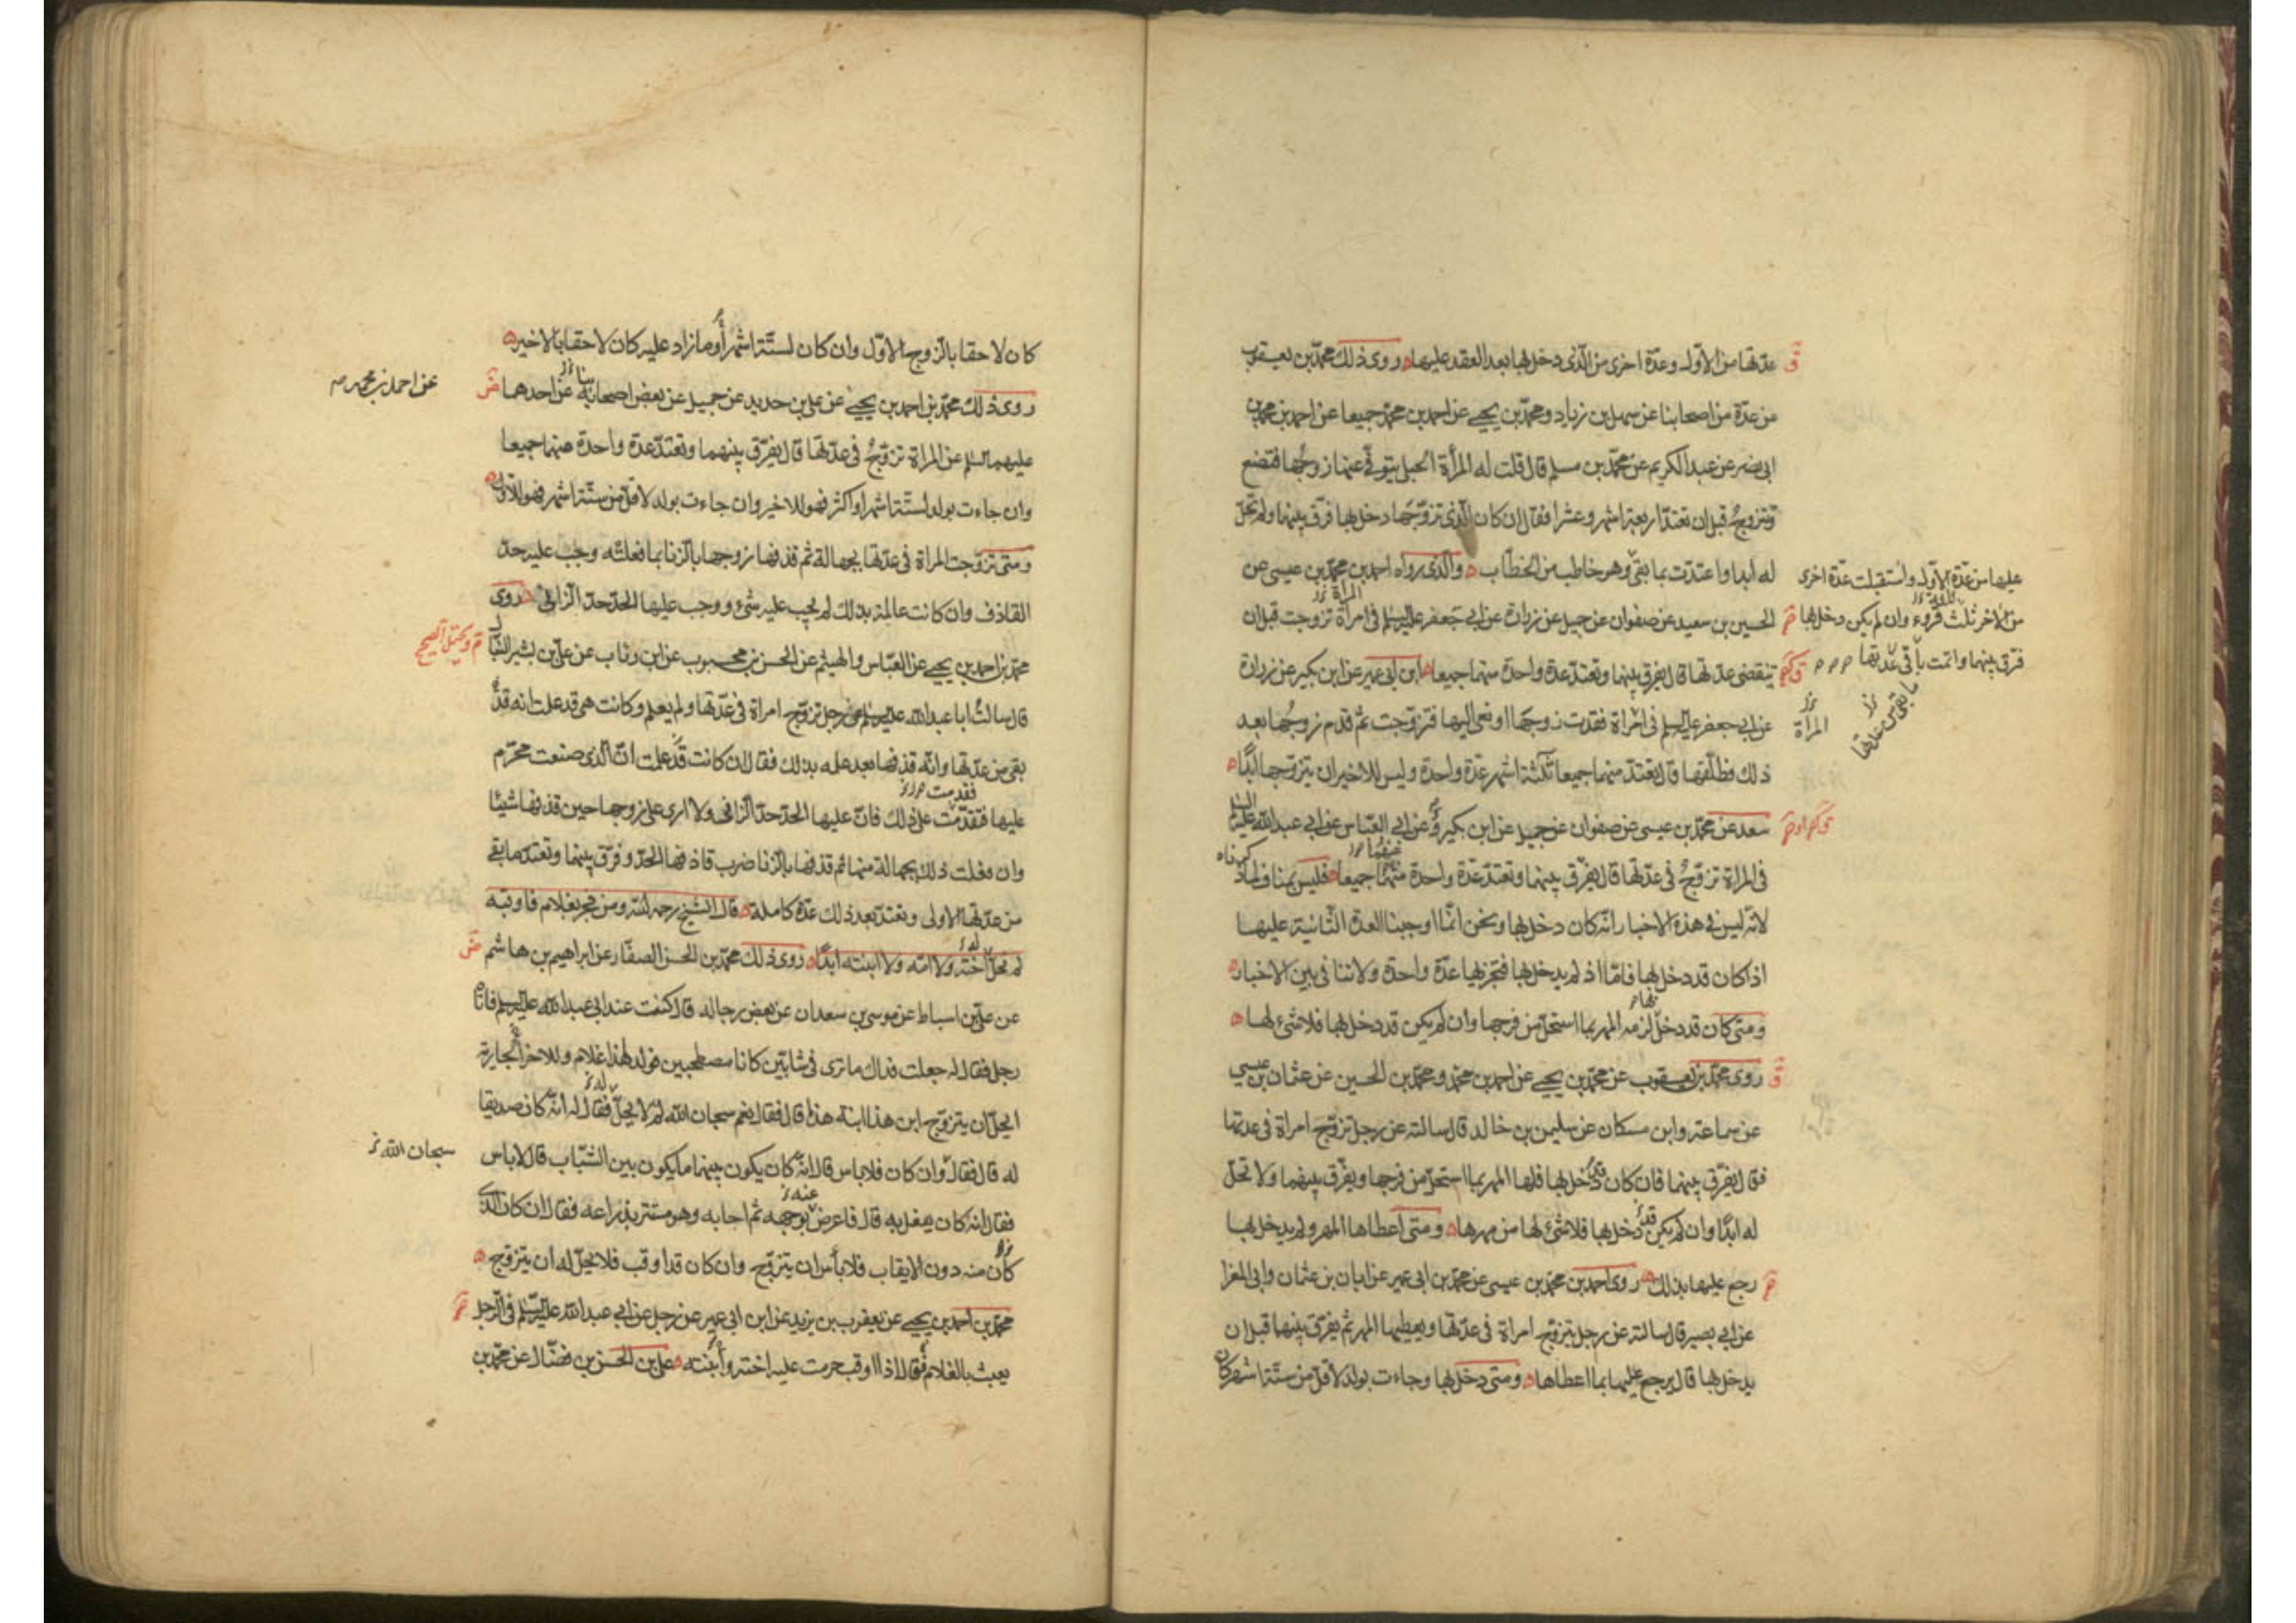 عدتها من الاول وعدة اخرى من الذى دخل بها بعد العقد عليها روى ذلك محمد بن يعقوب
من عدة من اصحابنا عن سهل بن زياد ومحمد بن يحيى عن احمد بن محمد جميعا عن احمد بن محمد بن
ابى نصر عن عبد الكريم عن محمد بن مسلم قال قلت له المرأة الحبلى يتوفى عنها زوجها فتضع
وتزوج قبل ان تعتد اربعة اشهر وعشرا فقال ان كان الذى تزوجها دخل بها فرق بينهما ولم تحل
له ابدا واعتدت بما بقى وهو خاطب من الخطاب والذى رواه احمد بن محمد بن عيسى عن
عليها من عدة الاول واستقبلت عدة اخرى
من الاخر ثلث قروء وان لم يكن دخل بها
فرق بينهما واتمت باقى عدتها
ما بقى من عدتها
المرأة
الحسين بن سعيد عن صفوان عن جميل عن زرارة عن ابى جعفر عليه السلم فى امرأة تزوجت قبل ان
تنقضى عدتها قال يفرق بينهما وتعتد عدة واحدة منهما جميعا ابن ابى عمير عن ابن بكير عن زرارة
عن ابى جعفر عليه السلم فى امراة فقدت زوجها او نعى اليها فتزوجت ثم قدم زوجها بعد
ذلك فطلقها قال تعتد منهما جميعا ثلثة اشهر عدة واحدة وليس للاخير ان يتزوجها ابدا
سعد عن محمد بن عيسى عن صفوان عن جميل عن ابن بكير او عن ابى العباس عن ابى عبد الله عليه السلم
فى المراة تزوج فى عدتها قال يفرق بينهما وتعتد عدة واحدة منهما جميعا فليس بمناف لما ذكرناه
لانه ليس فى هذه الاخبار انه كان دخل بها ونحن انما اوجبنا العدة الثانية عليها
اذا كان قد دخل بها فاما اذا لم يدخل بها فتجزيها عدة واحدة ولا تنافى بين الاخبار
ومتى كان قد دخل بها لزمه المهر بما استحل من فرجها وان لم يكن قد دخل بها فلا شئ لها
روى محمد بن يعقوب عن محمد بن يحيى عن احمد بن محمد ومحمد بن الحسين عن عثمان بن عيسى
عن سماعة وابن مسكان عن سليمن بن خالد قال سالته عن رجل تزوج امراة فى عدتها
فقال يفرق بينهما فان كان قد دخل بها فلها المهر بما استحل من فرجها ويفرق بينهما ولا تحل
له ابدا وان لم يكن قد دخل بها فلا شئ لها من مهرها ومتى اعطاها المهر ولم يدخل بها
رجع عليها بذلك روى احمد بن محمد بن عيسى عن محمد بن ابى عمير عن ابان بن عثمان وابى المغرا
عن ابى بصير قال سالته عن رجل يتزوج امراة فى عدتها ويعطيها المهر ثم يفرق بينهما قبل ان
يدخل بها قال يرجع عليها بما اعطاها ومتى دخل بها وجاءت بولد لاقل من ستة اشهر كان
كان لاحقا بالزوج الاول وان كان لستة اشهر او ما زاد عليه كان لاحقا بالاخير
روى ذلك محمد بن احمد بن يحيى عن على بن حديد عن جميل عن بعض اصحابه عن احدهما
عن احمد بن محمد
عليهما السلم عن المراة تزوج فى عدتها قال يفرق بينهما وتعتد عدة واحدة منهما جميعا
وان جاءت بولد لستة اشهر او اكثر فهو للاخير وان جاءت بولد لاقل من ستة اشهر فهو للاول
ومتى تزوجت المراة فى عدتها بجهالة ثم قذفها زوجها بالزنا بما فعلته وجب عليه حد
القاذف وان كانت عالمة بذلك لم يجب عليه شئ ووجب عليها الحد حد الزانى روى
محمد بن احمد بن يحيى عن العباس والهيثم عن الحسن بن محبوب عن ابن رئاب عن على بن بشير النبال
قال سالت ابا عبد الله عليه السلم عن رجل تزوج امراة فى عدتها ولم يعلم وكانت هى قد علمت انه قد
بقى من عدتها وانه قذفها بعد علمه بذلك فقال ان كانت قد علمت ان الذى صنعت محرم
عليها فقدمت على ذلك فان عليها الحد حد الزانى ولا ارى على زوجها حين قذفها شيئا
وان فعلت ذلك بجهالة منها ثم قذفها بالزنا ضرب قاذفها الحد وفرق بينهما وتعتد ما بقى
من عدتها الاولى وتعتد بعد ذلك عدة كاملة قال الشيخ رحمه الله ومن فجر بغلام فاوقبه
لم تحل له اخته ولا امه ولا ابنته ابدا روى ذلك محمد بن الحسن الصفار عن ابراهيم بن هاشم
عن على بن اسباط عن موسى بن سعدان عن بعض رجاله قال كنت عند ابى عبد الله عليه السلم فاتاه
رجل فقال له جعلت فداك ما ترى فى شابين كانا مصطحبين فولد لهذا غلام وللاخر جارية
ايحل ان يتزوج ابن هذا ابنة هذا قال فقال نعم سبحان الله لم لا يحل فقال له انه كان صديقا
له قال فقال وان كان فلا باس قال انه كان يكون بينهما ما يكون بين الشباب قال لا باس
سبحان الله
فقال انه كان يفعل به قال فاعرض بوجهه ثم اجابه وهو مستتر بذراعه فقال ان كان الذى
كان منه دون الايقاب فلا بأس ان يتزوج وان كان قد اوقب فلا يحل له ان يتزوج
محمد بن احمد بن يحيى عن يعقوب بن يزيد عن ابن ابى عمير عن رجل عن ابى عبد الله عليه السلم فى الرجل
يعبث بالغلام قال اذا اوقب حرمت عليه اخته وابنته على بن الحسن بن فضال عن محمد بن